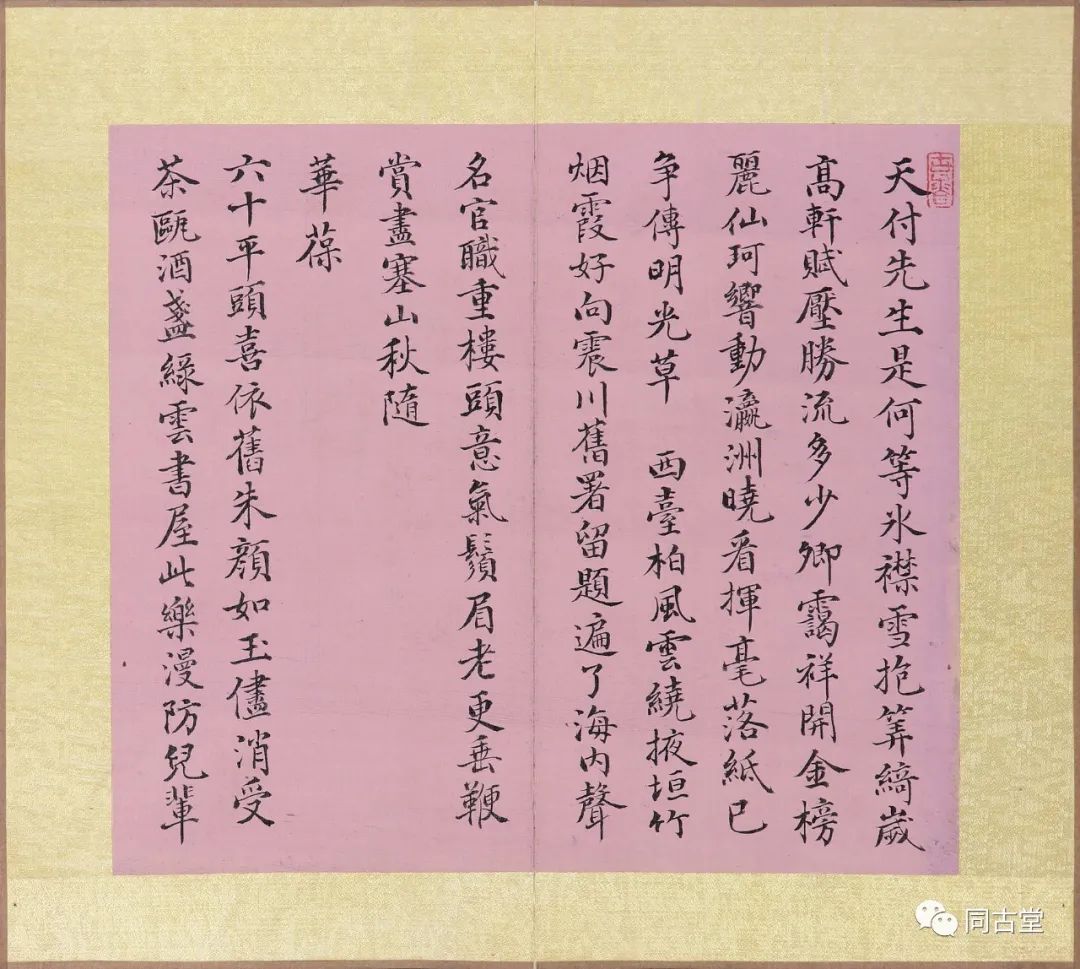 天付先生是何等氷襟雪抱筭綺歲
高軒賦壓勝流多少卿靄祥開金榜
麗仙珂響動瀛洲曉看揮毫落紙已
争傳明光草 西臺柏風雲繞掖垣竹
烟霞好向震川舊署留題遍了海内聲
名官職重樓頭意氣鬚眉老更垂鞭
賞盡塞山秋隨
華葆
六十平頭喜依舊朱顔如玉儘消受
茶甌酒盞緑雲書屋此樂漫防兒輩
同古堂